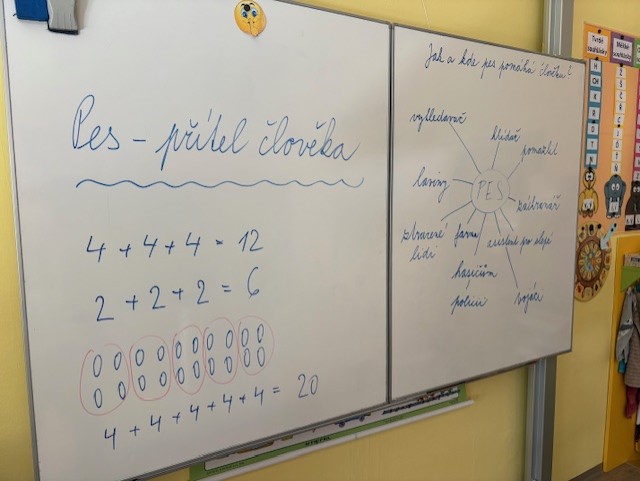 Pes - přítel člověka
4 + 4 + 4 = 12
2 + 2 + 2 = 6
4 + 4 + 4 + 4 + 4 = 20
Jak a kde pes pomáhá člověku?
vyhledavač
hlídač
pomazlil
laviny
PES
záchranář
ztracené
lidi
farma
asistent pro slepé
hasičům
policii
vojáci
Tvrdé
souhlásky
H
CH
K
R
D
T
N
Měkké
souhlásky
Ž
Š
Č
Ř